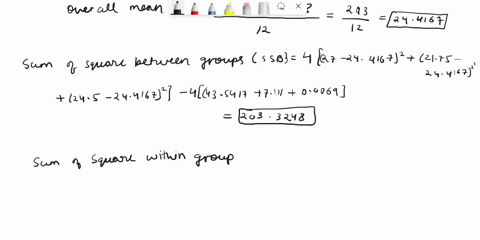 overall mean = 293/12 = 24.4167
12
Sum of square between groups (SSB) = 4[(27-24.4167)² + (21.75-24.4167)²
+ (24.5-24.4167)²] - 4[(43.5417 + 7.111 + 0.0069]
= 203.3248
Sum of square within group